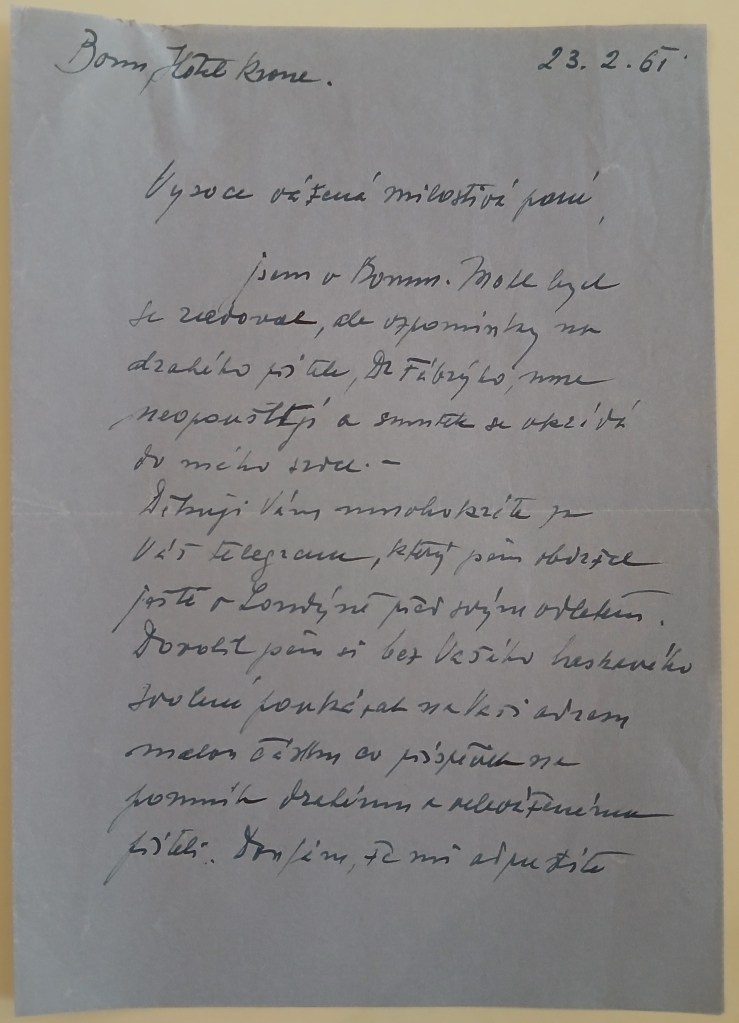 Bonn, Hotel Krone. 23. 2. 61.
Vysoce vážená milostivá paní,
jsem v Bonnu. Moh bych
se radovat, ale vzpomínky na
drahého přítele, Dr Fábrýho, mne
neopouštějí a smutek se vkrádá
do mého srdce. –
Děkuji Vám mnohokráte za
Váš telegram, který jsem obdržel
ještě v Londýně před svým odletem.
Dovolil jsem si bez Vašeho laskavého
svolení poukázat na Vaši adresu
malou částku co příspěvek na
pomník drahému a veleváženému
příteli. Doufám, že mi odpustíte